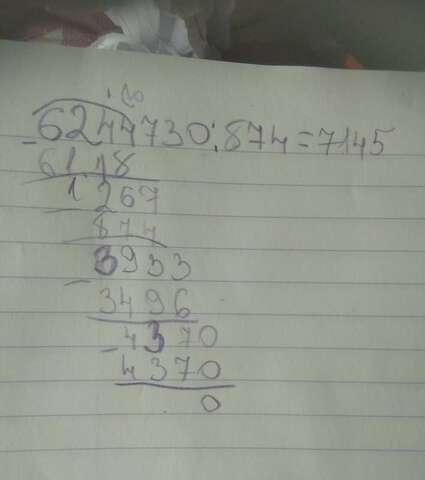 6244730:874=7145
- 6118
1267
874
3933
- 3496
- 4370
4370
0